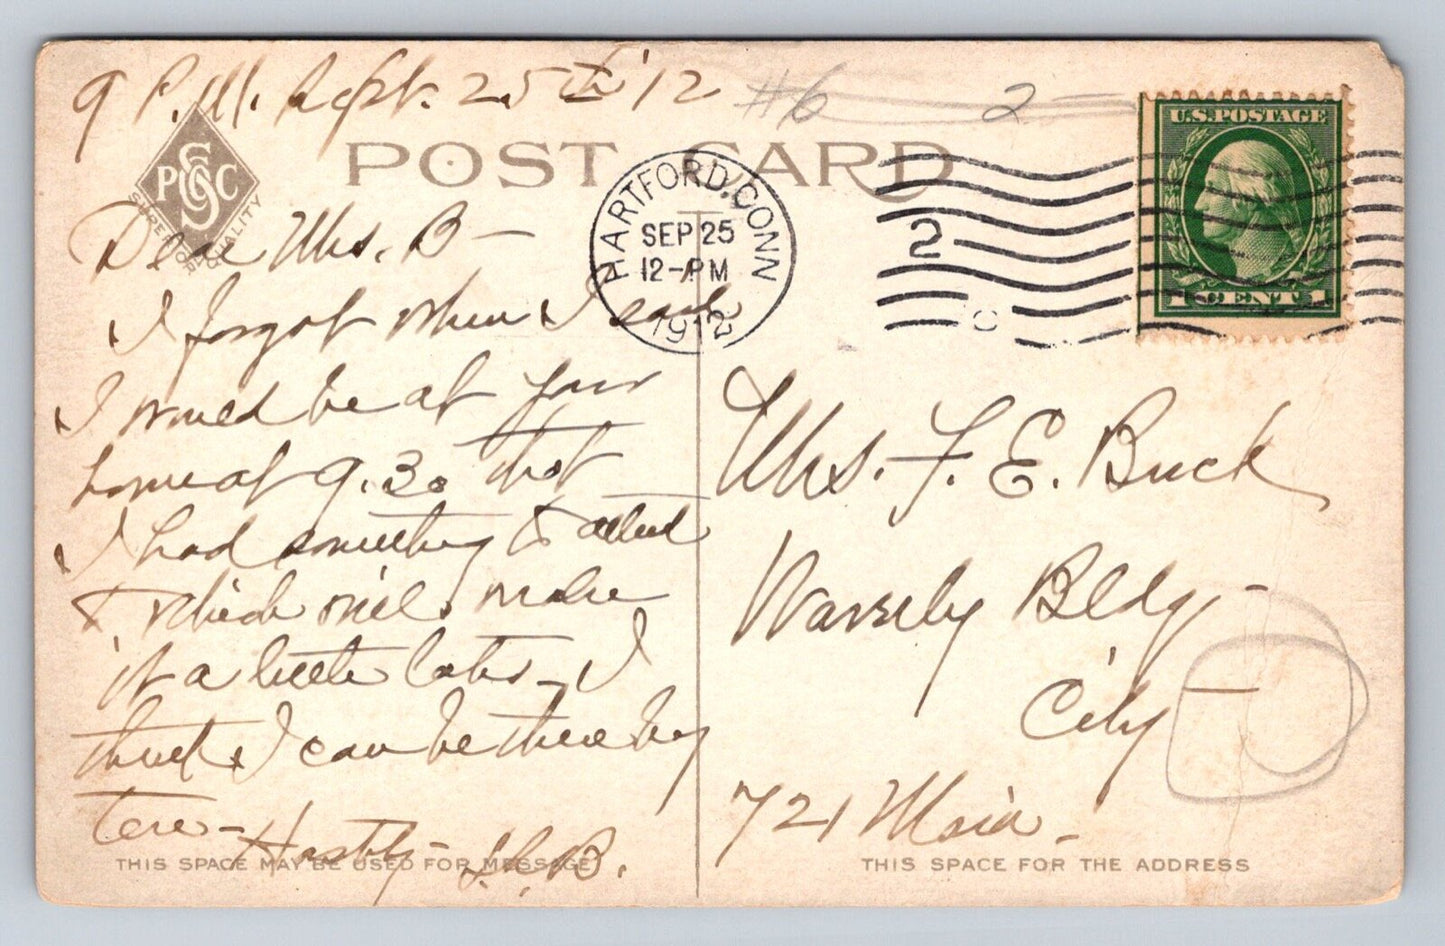 9 P.M. Sept. 25th '12
#6 2
POST CARD
P S G C
SUPERIOR QUALITY
HARTFORD, CONN
SEP 25
12-PM
1912
2
C
U.S. POSTAGE
1 CENT 1
Dear Mrs. B —
I forgot when I said
I would be at your
home at 9.30 that
I had something to attend
to which will make
it a little later — I
think I can be there by
ten — Hastily —
B.
Mrs. F. E. Buck
Waverly Bldg. —
City —
721 Main —
THIS SPACE MAY BE USED FOR MESSAGE
THIS SPACE FOR THE ADDRESS